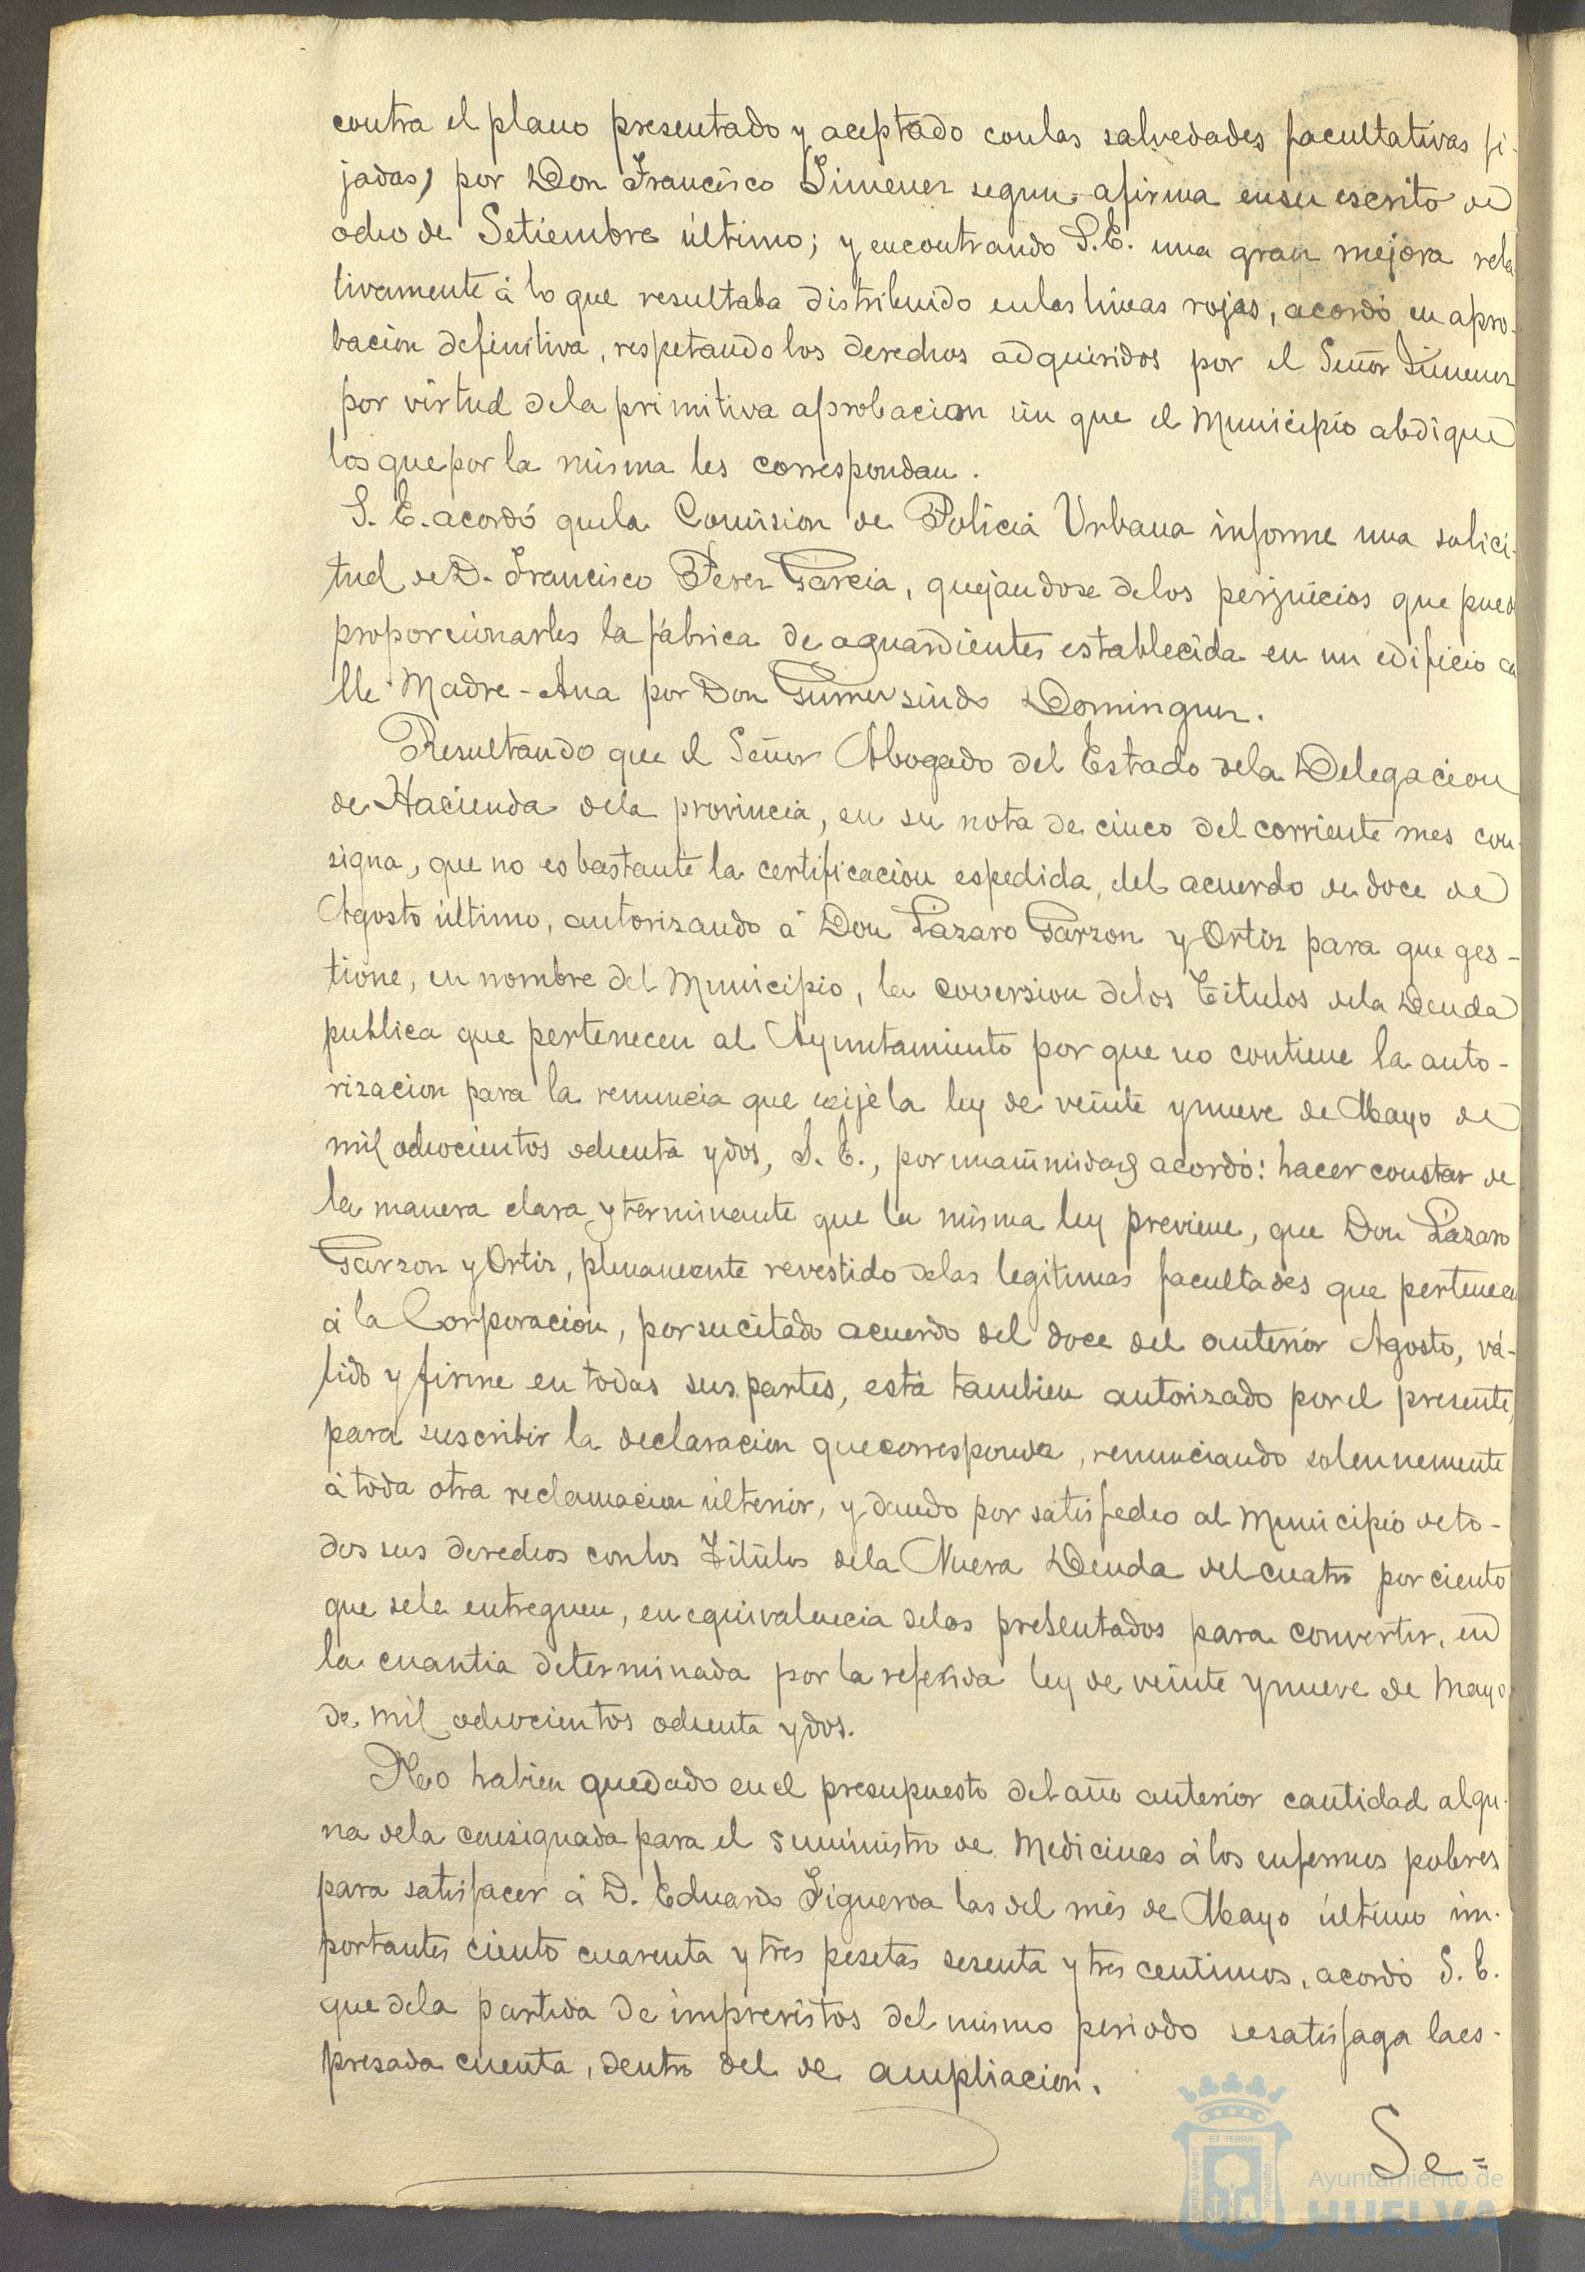 contra el plano presentado y aceptado con las salvedades facultativas fi-
jadas, por Don Francisco Jimenez segun afirma en su escrito de
ocho de Setiembre último; y encontrando S. E. una gran mejora rela
tivamente á lo que resultaba distribuido en las lineas rojas, acordó su apro-
bacion definitiva, respetando los derechos adquiridos por el Señor Jimenez
por virtud de la primitiva aprobacion sin que el Municipio abdique
los que por la misma les correspondan.
S. E. acordó que la Comision de Policia Urbana informe una solici-
tud de D. Francisco Perez Garcia, quejandose de los perjuicios que puede
proporcionarles la fábrica de aguardientes establecida en un edificio ca
lle Madre-Ana por Don Gumersindo Dominguez.
Resultando que el Señor Abogado del Estado de la Delegacion
de Hacienda de la provincia, en su nota de cinco del corriente mes con-
signa, que no es bastante la certificacion espedida, del acuerdo de doce de
Agosto último, autorizando á Don Lázaro Garzon y Ortiz para que ges-
tione, en nombre del Municipio, la coversion de los Titulos de la Deuda
publica que pertenecen al Ayuntamiento por que no contiene la auto-
rizacion para la renuncia que exije la ley de veinte y nueve de Mayo de
mil ochocientos ochenta y dos, S. E., por unanimidad acordó: hacer constar de
la manera clara y terminante que la misma ley previene, que Don Lázaro
Garzon y Ortiz, plenamente revestido de las legitimas facultades que pertenecen
á la Corporacion, por su citado acuerdo del doce del anterior Agosto, vá-
lido y firme en todas sus partes, está tambien autorizado por el presente,
para suscribir la declaracion que corresponda, renunciando solennemente
á toda otra reclamacion ulterior, y dando por satisfecho al Municipio de to-
dos sus derechos con los Titulos de la Nueva Deuda del cuatro por ciento
que se le entreguen, en equivalencia de los presentados para convertir, en
la cuantia determinada por la referida ley de veinte y nueve de Mayo
de mil ochocientos ochenta y dos.
No habien quedado en el presupuesto del año anterior cantidad algu-
na de la consignada para el suministro de Medicinas á los enfermos pobres
para satisfacer á D. Eduardo Figueroa las del mes de Mayo último im-
portantes ciento cuarenta y tres pesetas sesenta y tres centimos, acordó S. E.
que de la partida de imprevistos del mismo periodo se satisfaga la es-
presada cuenta, dentro del de ampliacion.
Se=
Ayuntamiento de
HUELVA